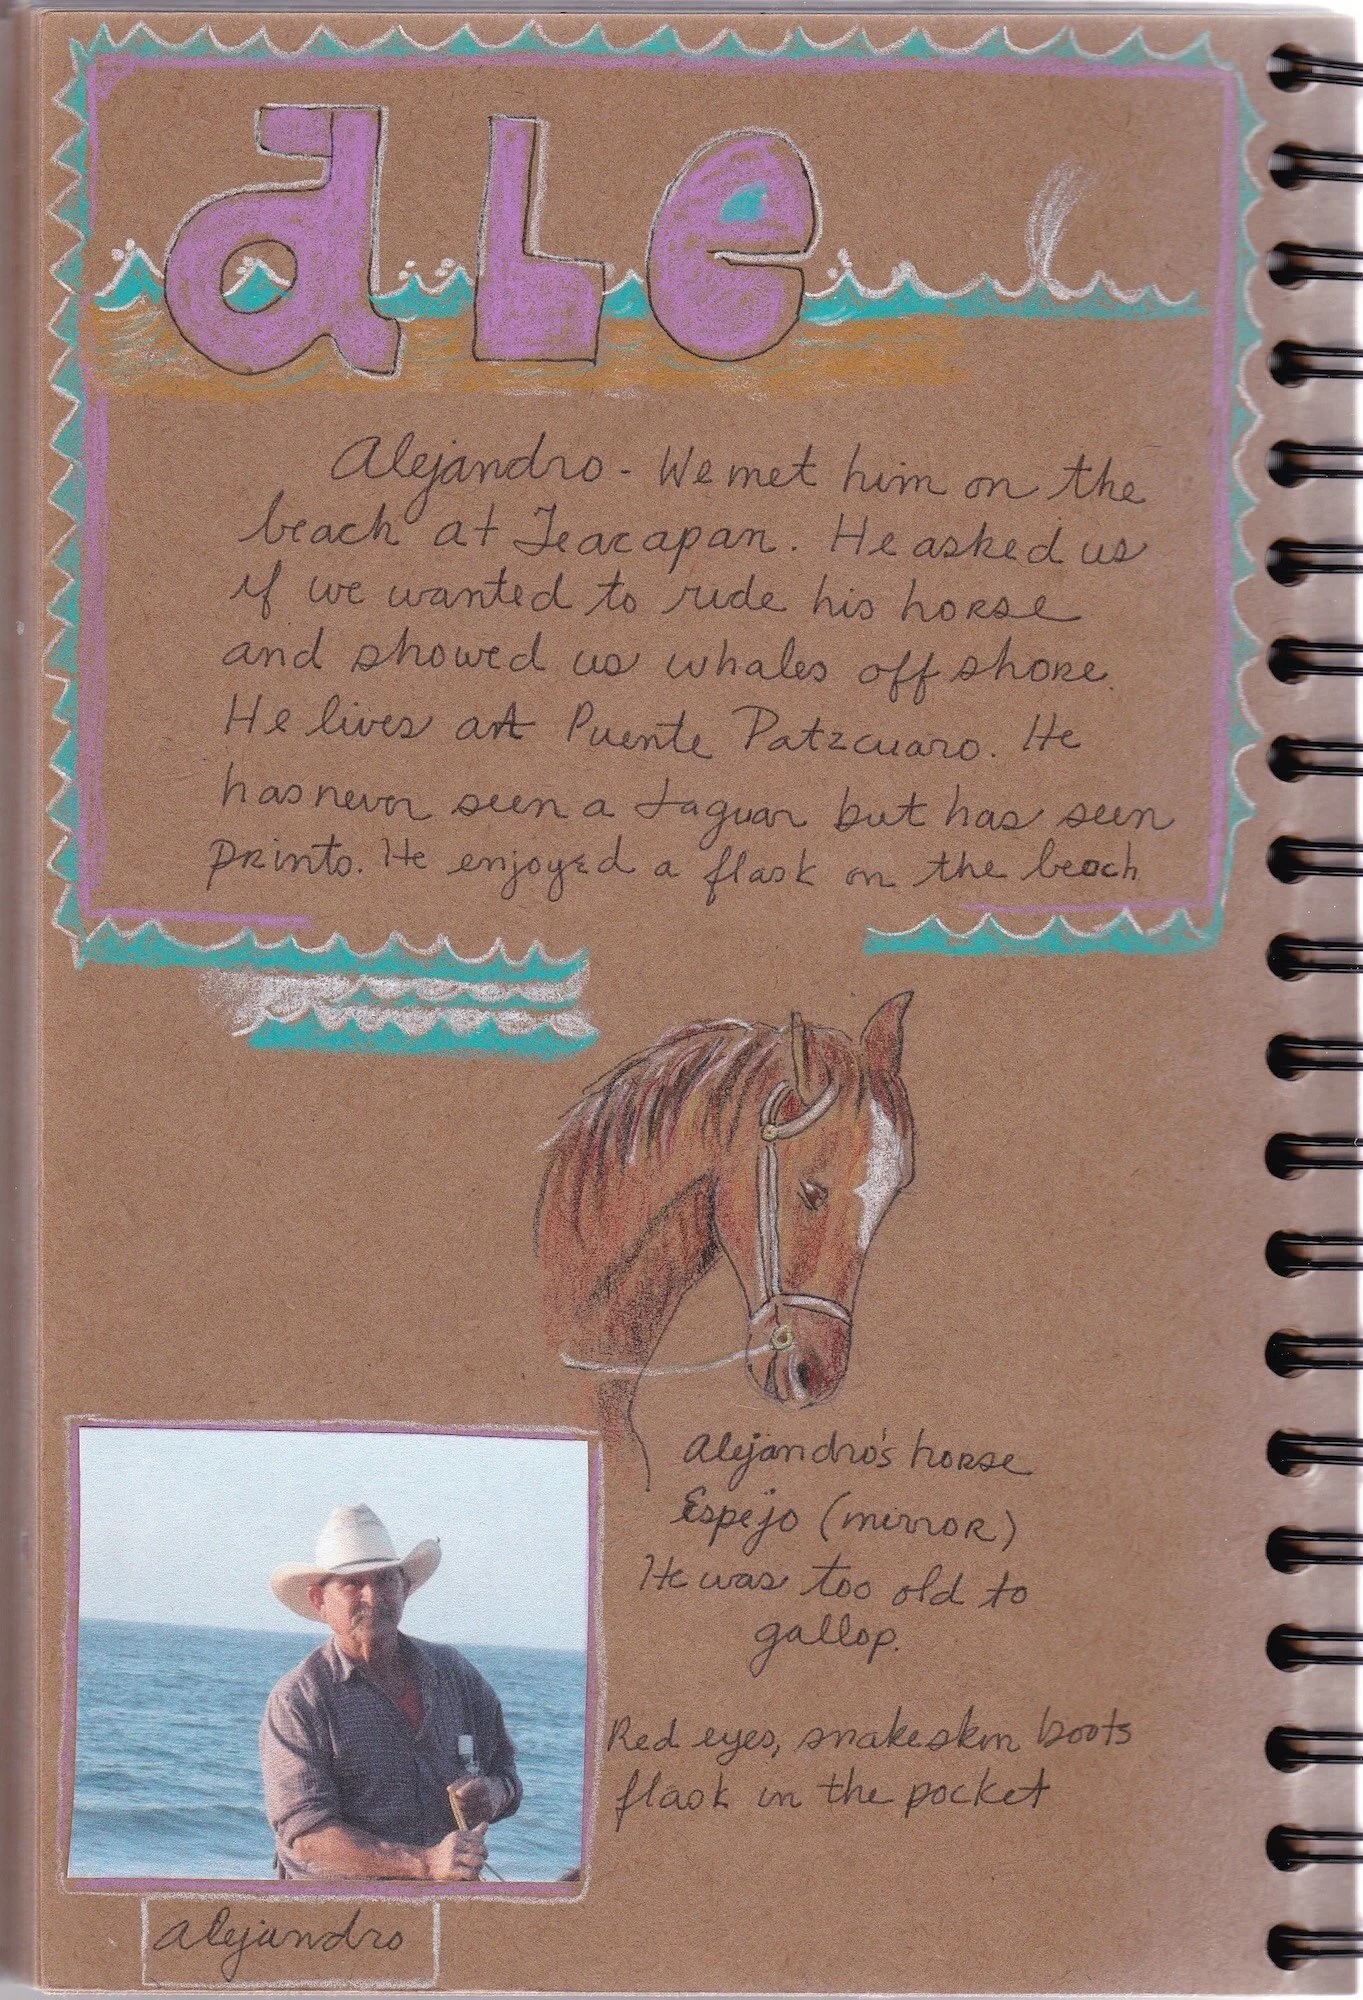 aLe
Alejandro - We met him on the
beach at Teacapan. He asked us
if we wanted to ride his horse
and showed us whales off shore.
He lives at Puente Patzcuaro. He
has never seen a Jaguar but has seen
prints. He enjoyed a flask on the beach
Alejandro's horse
Espejo (mirror)
He was too old to
gallop.
Red eyes, snakeskin boots
flask in the pocket
Alejandro